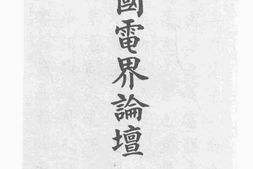 國電界論壇